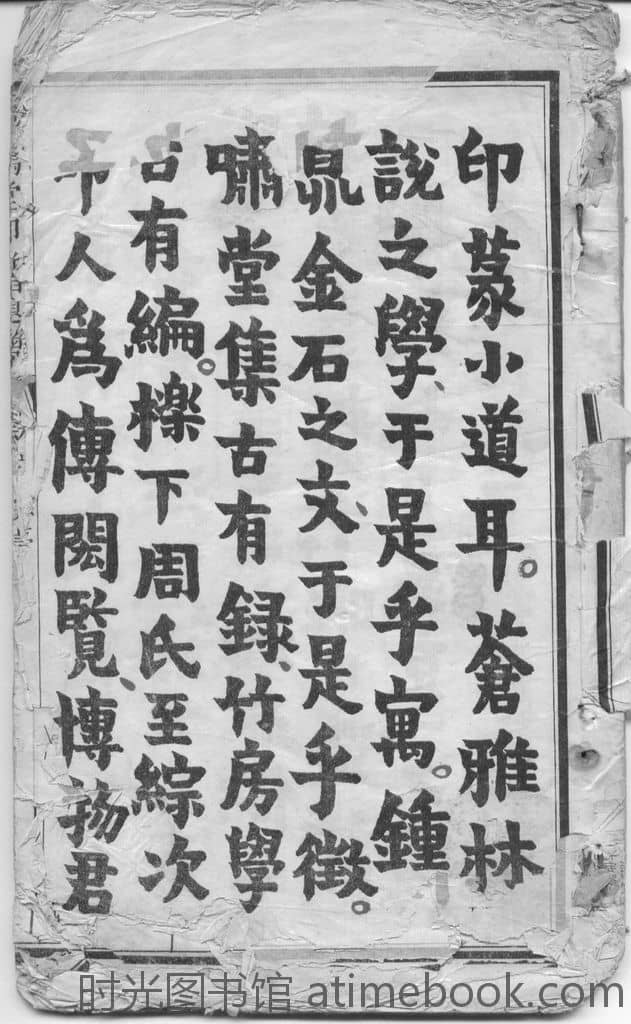 印篆小道耳。蒼雅林
說之學、于是乎寓。鍾
鼎金石之文、于是乎徵。
嘯堂集古有録、竹房學
古有編。櫟下周氏至綜次
人爲傳閎覽、博物君
时光图书馆 atimebook.com